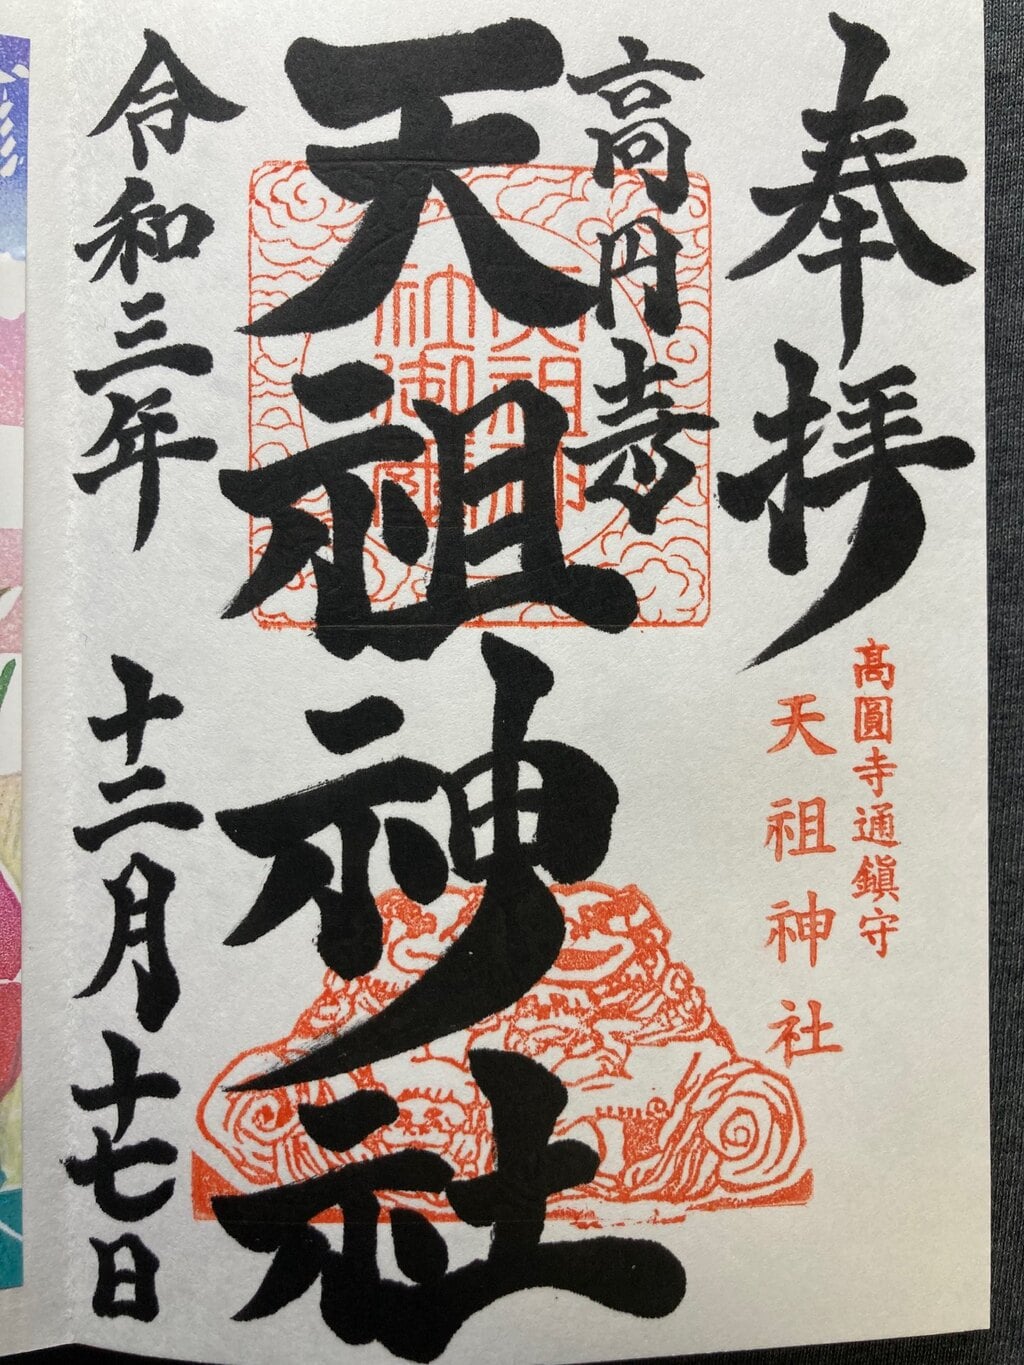 奉拝
高円寺
天祖神社
令和三年
十二月十七日
高圓寺通鎮守
天祖神社
天祖神
社御璽